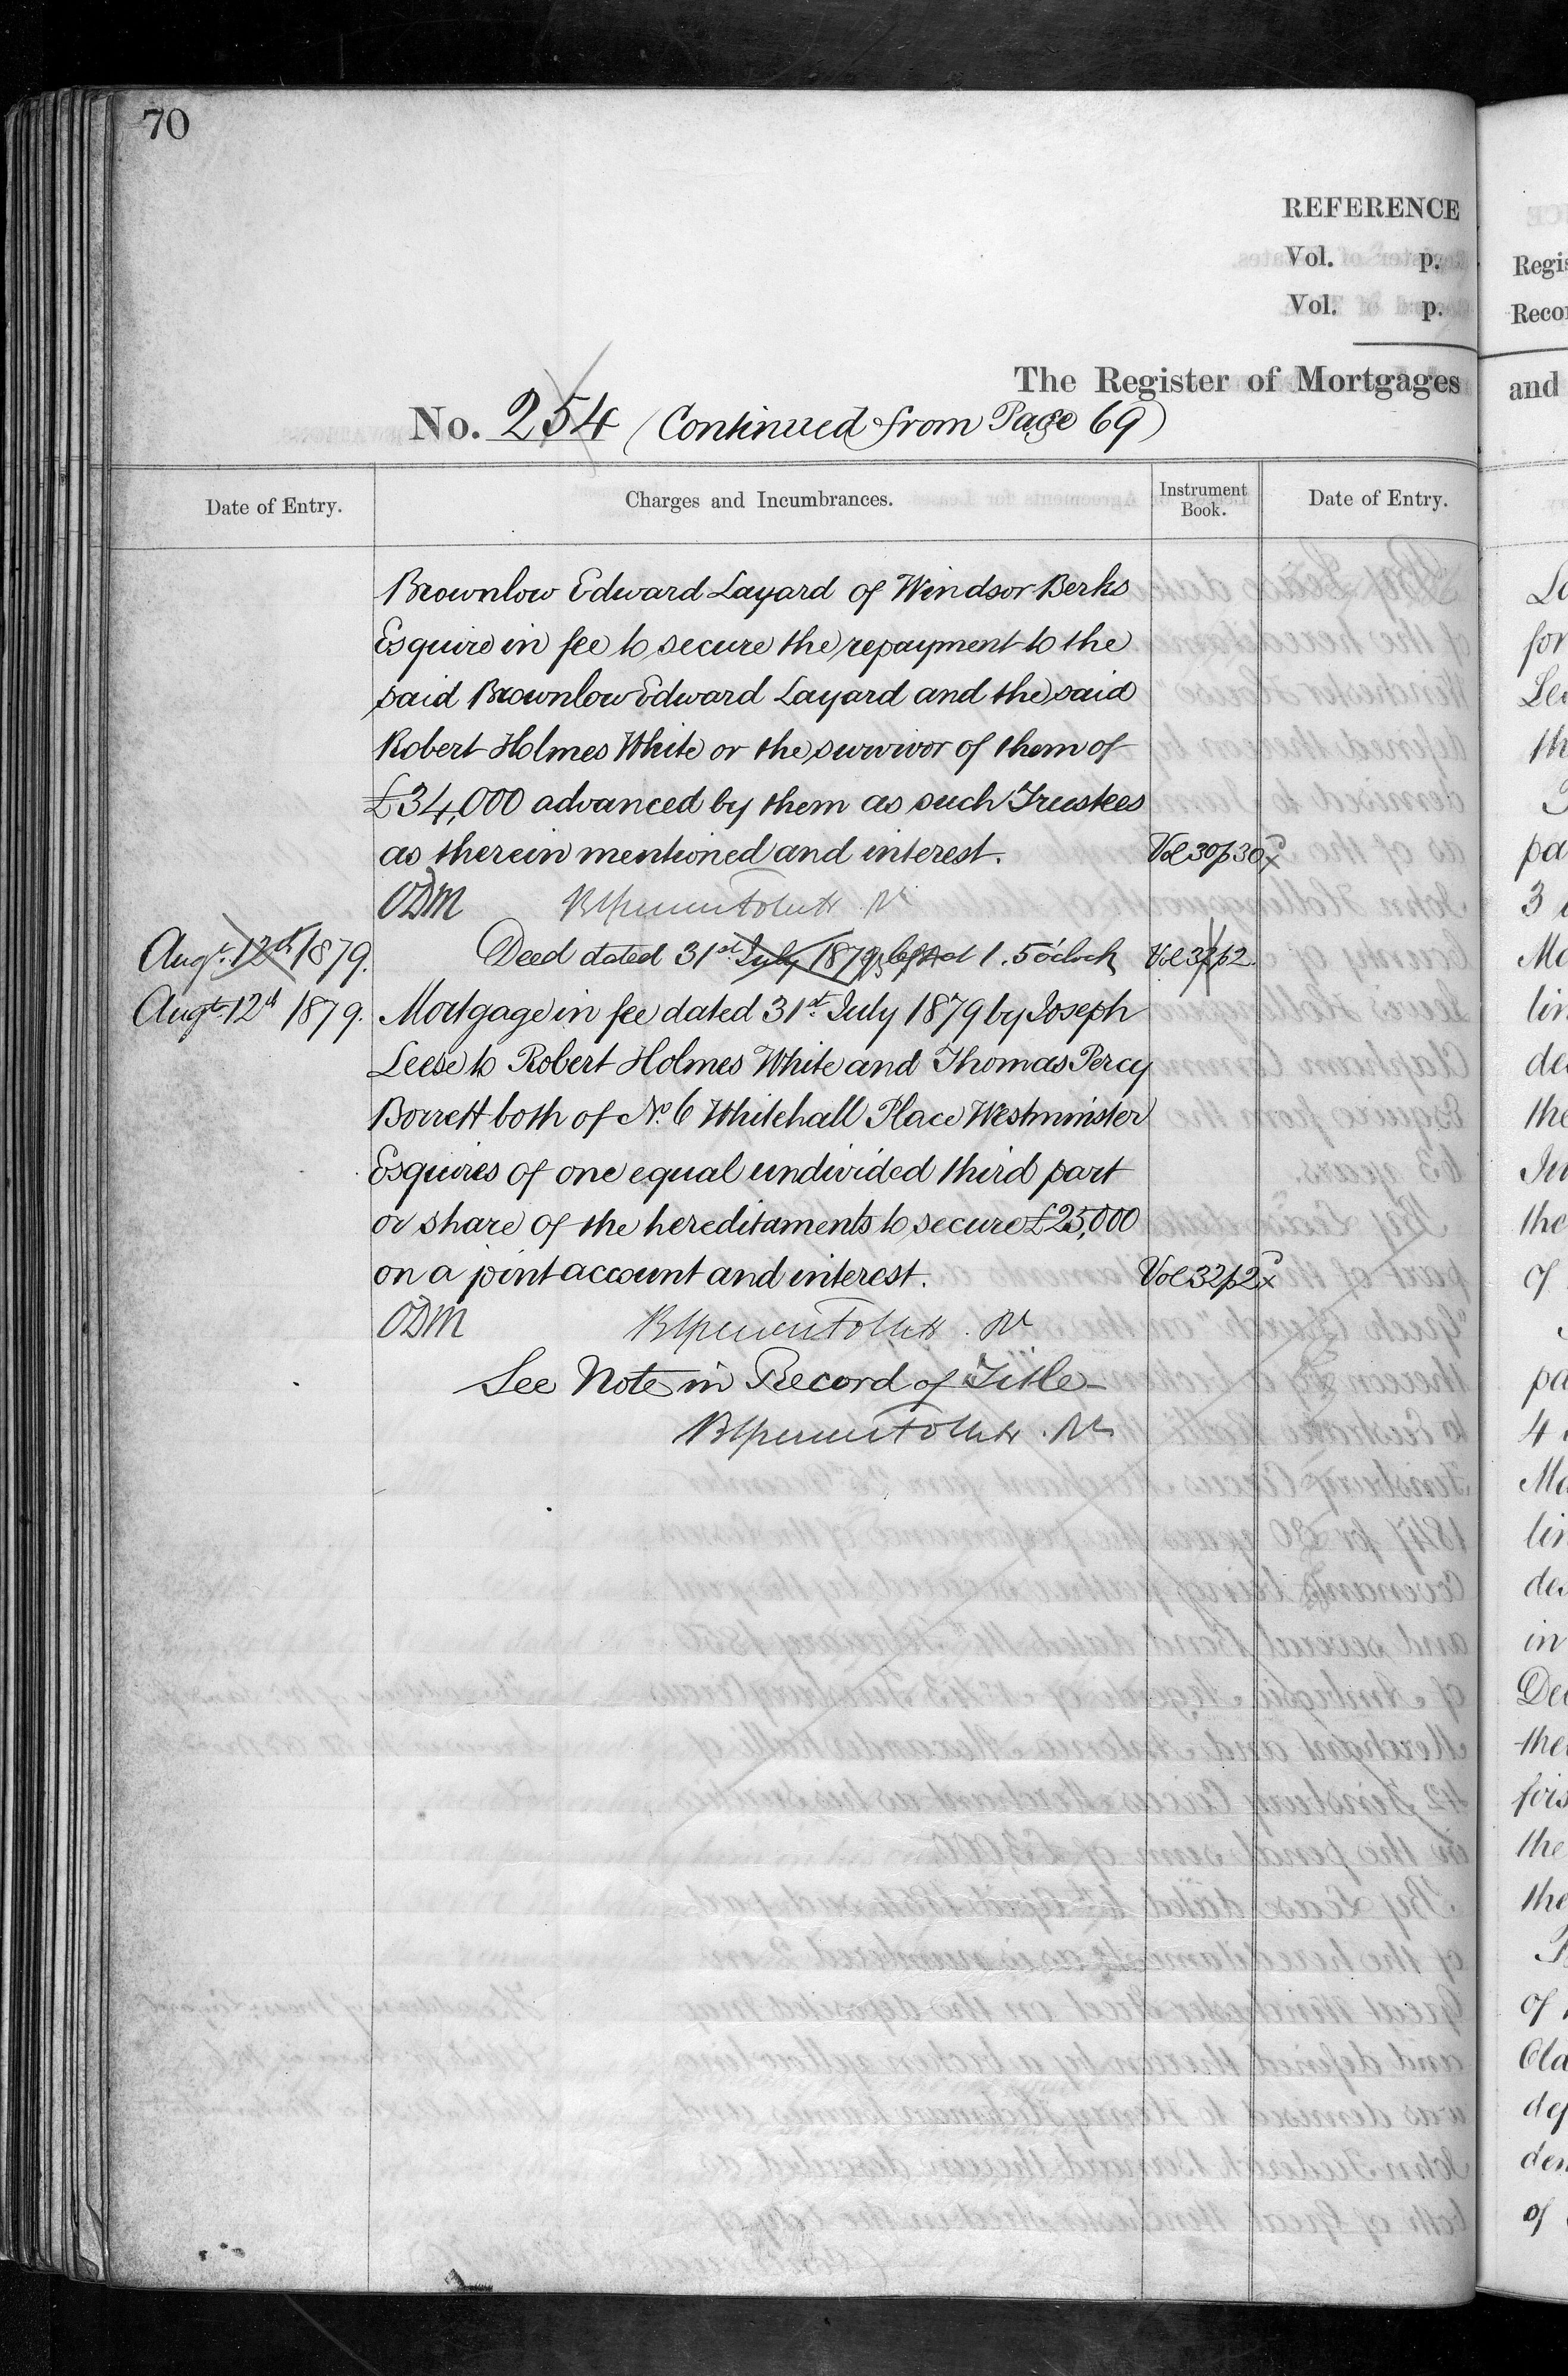 70
REFERENCE
Vol. p.
Vol. p.
The Register of Mortgages
No. 254 (Continued from Page 69)
Date of Entry.
Charges and Incumbrances.
Instrument Book.
Date of Entry.
Brownlow Edward Layard of Windsor Berks
Esquire in fee to secure the repayment to the
said Brownlow Edward Layard and the said
Robert Holmes White or the survivor of them of
£34,000 advanced by them as such Trustees
as therein mentioned and interest. Vol 30 p 30
ODM
Augt. 12th 1879. Deed dated 31st July 1879 left at 1.5 o'clock Vol 32 p 2.
Augt. 12th 1879. Mortgage in fee dated 31st July 1879 by Joseph
Leese to Robert Holmes White and Thomas Percy
Borrett both of No. 6 Whitehall Place Westminster
Esquires of one equal undivided third part
or share of the hereditaments to secure £25,000
on a joint account and interest. Vol 32 p 2
ODM
See Note in Record of Title
Regis
Recor
and